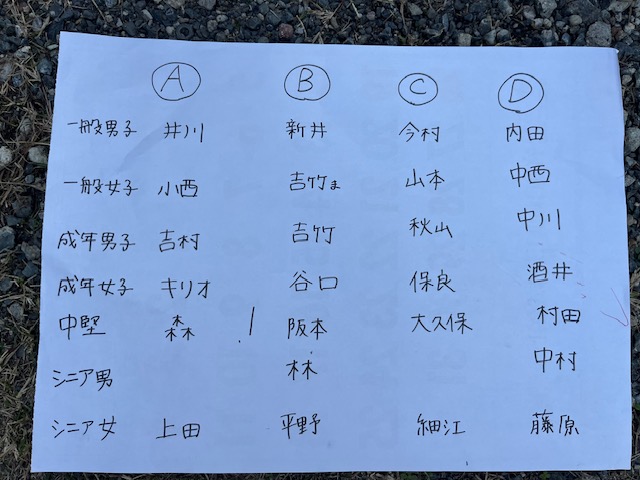 Ⓐ Ⓑ Ⓒ Ⓓ
一般男子 井川 新井 今村 内田
一般女子 小西 吉竹ま 山本 中西
成年男子 吉村 吉竹 秋山 中川
成年女子 キリオ 谷口 保良 酒井
中堅 森 ! 阪本 大久保 村田
シニア男 林 中村
シニア女 上田 平野 細江 藤原